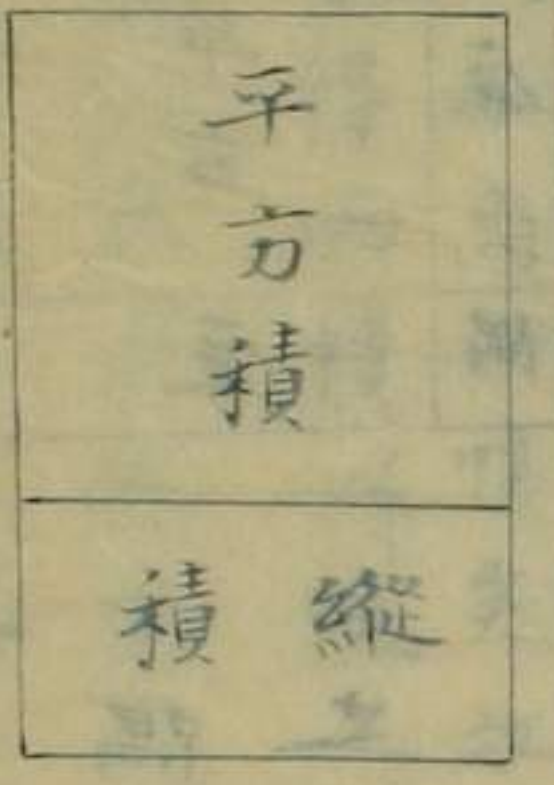 平方積
縱積